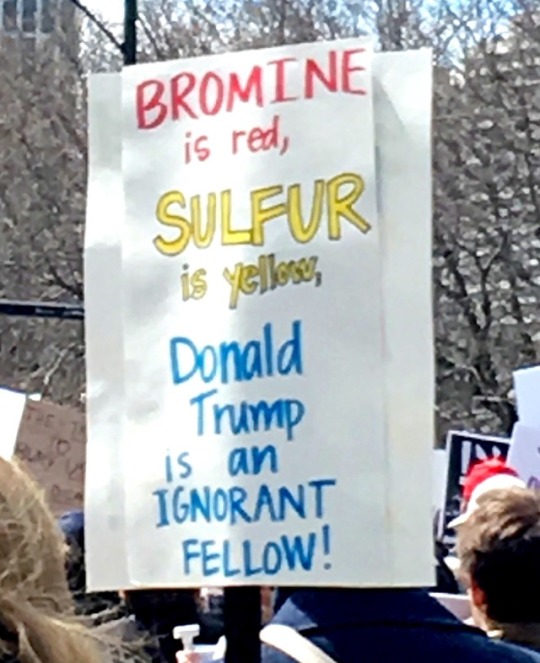 BROMINE
is red,
SULFUR
is yellow,
Donald
Trump
is an
IGNORANT
FELLOW!